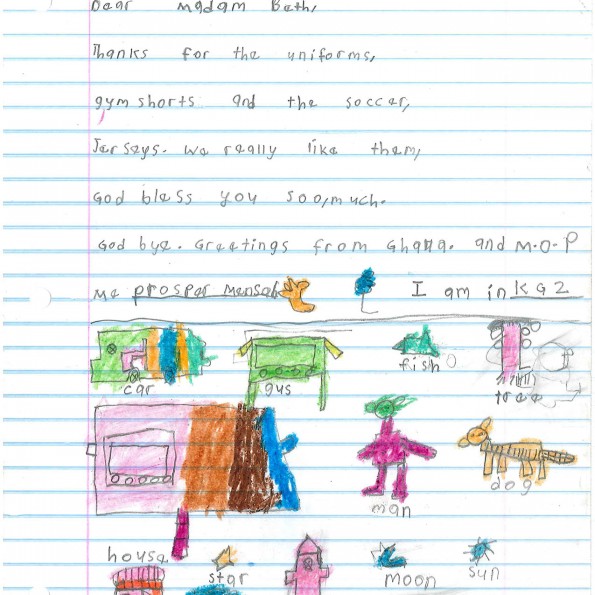 Dear Madam Beth,
Thanks for the uniforms,
gymshorts and the soccer,
Jerseys. we really like them,
God bless you soo,much.
God bye. Greetings from Ghana. and M.O.P
Me prosper Mensah I am in KG2
fish
car gus tree
man dog
house star moon sun